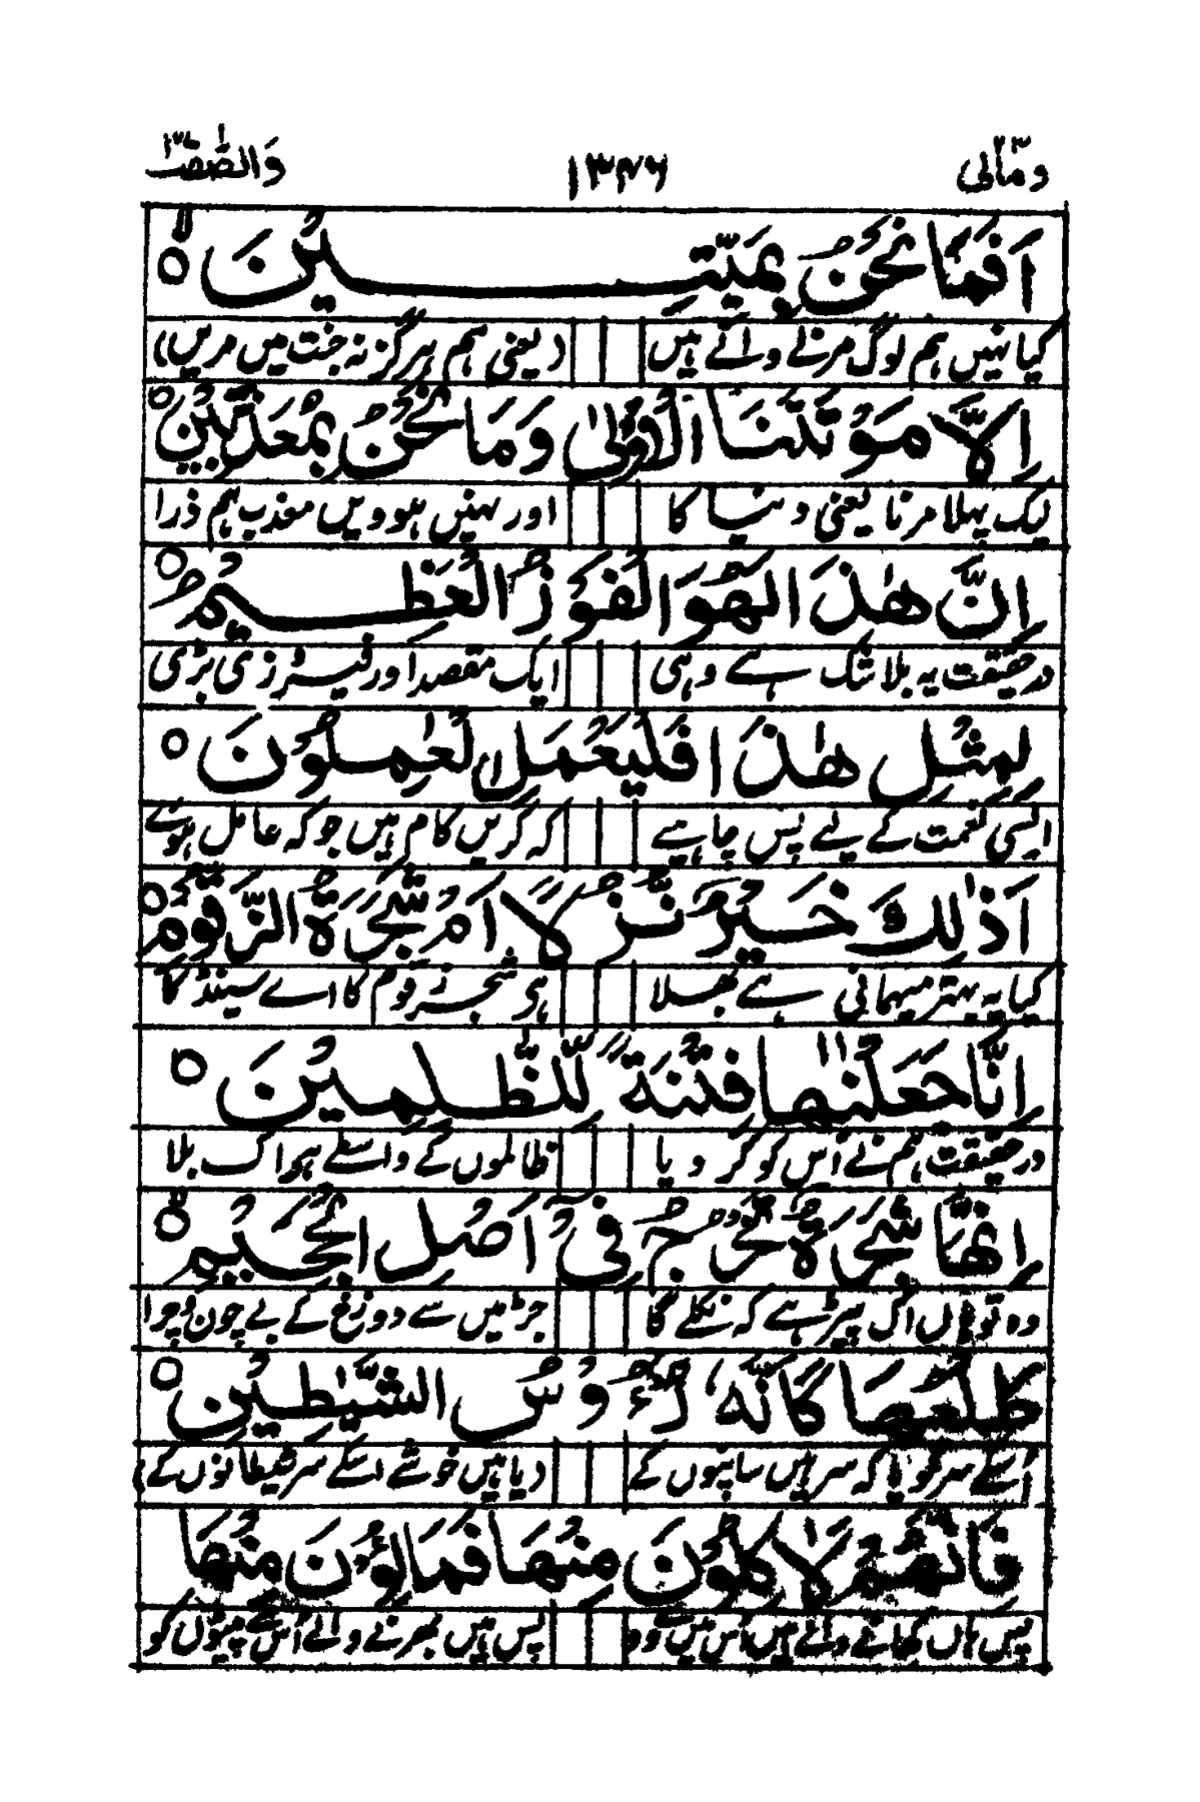 ومالی ۲۳ ۱۳۴۶ والصّٰفّٰت ۳۷
اَفَمَا نَحْنُ بِمَيِّتِيْنَ ۝ۙ
کیا نہیں ہم لوگ مرنے والے ہیں (یعنی ہم ہرگز نہ جنت میں مریں)
اِلَّا مَوْتَتَنَا الْاُوْلٰى وَمَا نَحْنُ بِمُعَذَّبِيْنَ ۝
لیک پہلا مرنا یعنی دنیا کا اور نہیں ہوویں معذب ہم ذرا
اِنَّ هٰذَا لَهُوَ الْفَوْزُ الْعَظِيْمُ ۝
درحقیقت یہ بلا شک ہے وہی ایک مقصد اور فیروزی بڑی
لِمِثْلِ هٰذَا فَلْيَعْمَلِ الْعٰمِلُوْنَ ۝
ایسی نعمت کے لیے پس چاہیے کہ کریں کام ہیں جو کہ عامل ہوئے
اَذٰلِكَ خَيْرٌ نُّزُلًا اَمْ شَجَرَةُ الزَّقُّوْمِ ۝
کیا یہ بہتر میہمانی ہے بھلا ہی شجر زقوم کا اے سینڈ کا
اِنَّا جَعَلْنٰهَا فِتْنَةً لِّلظّٰلِمِيْنَ ۝
درحقیقت ہم نے اس کو کر دیا ظالموں کے واسطے ہو اک بلا
اِنَّهَا شَجَرَةٌ تَخْرُجُ فِيْٓ اَصْلِ الْجَحِيْمِ ۝ۙ
وہ تو ہاں اک پیڑ ہے کہ نکلے گا جڑ میں سے دوزخ کے بے چون و چرا
طَلْعُهَا كَاَنَّهٗ رُءُوْسُ الشَّيٰطِيْنِ ۝
اسکے سر گویا کہ سر ہیں سانپوں کے (یا ہیں خوشے اسکے سر شیطانوں کے)
فَاِنَّهُمْ لَاٰكِلُوْنَ مِنْهَا فَمَالِـُٔوْنَ مِنْهَا
پس ہاں کھانے والے ہیں اس میں سے وہ پس ہیں بھرنے والے اس سے پیٹوں کو